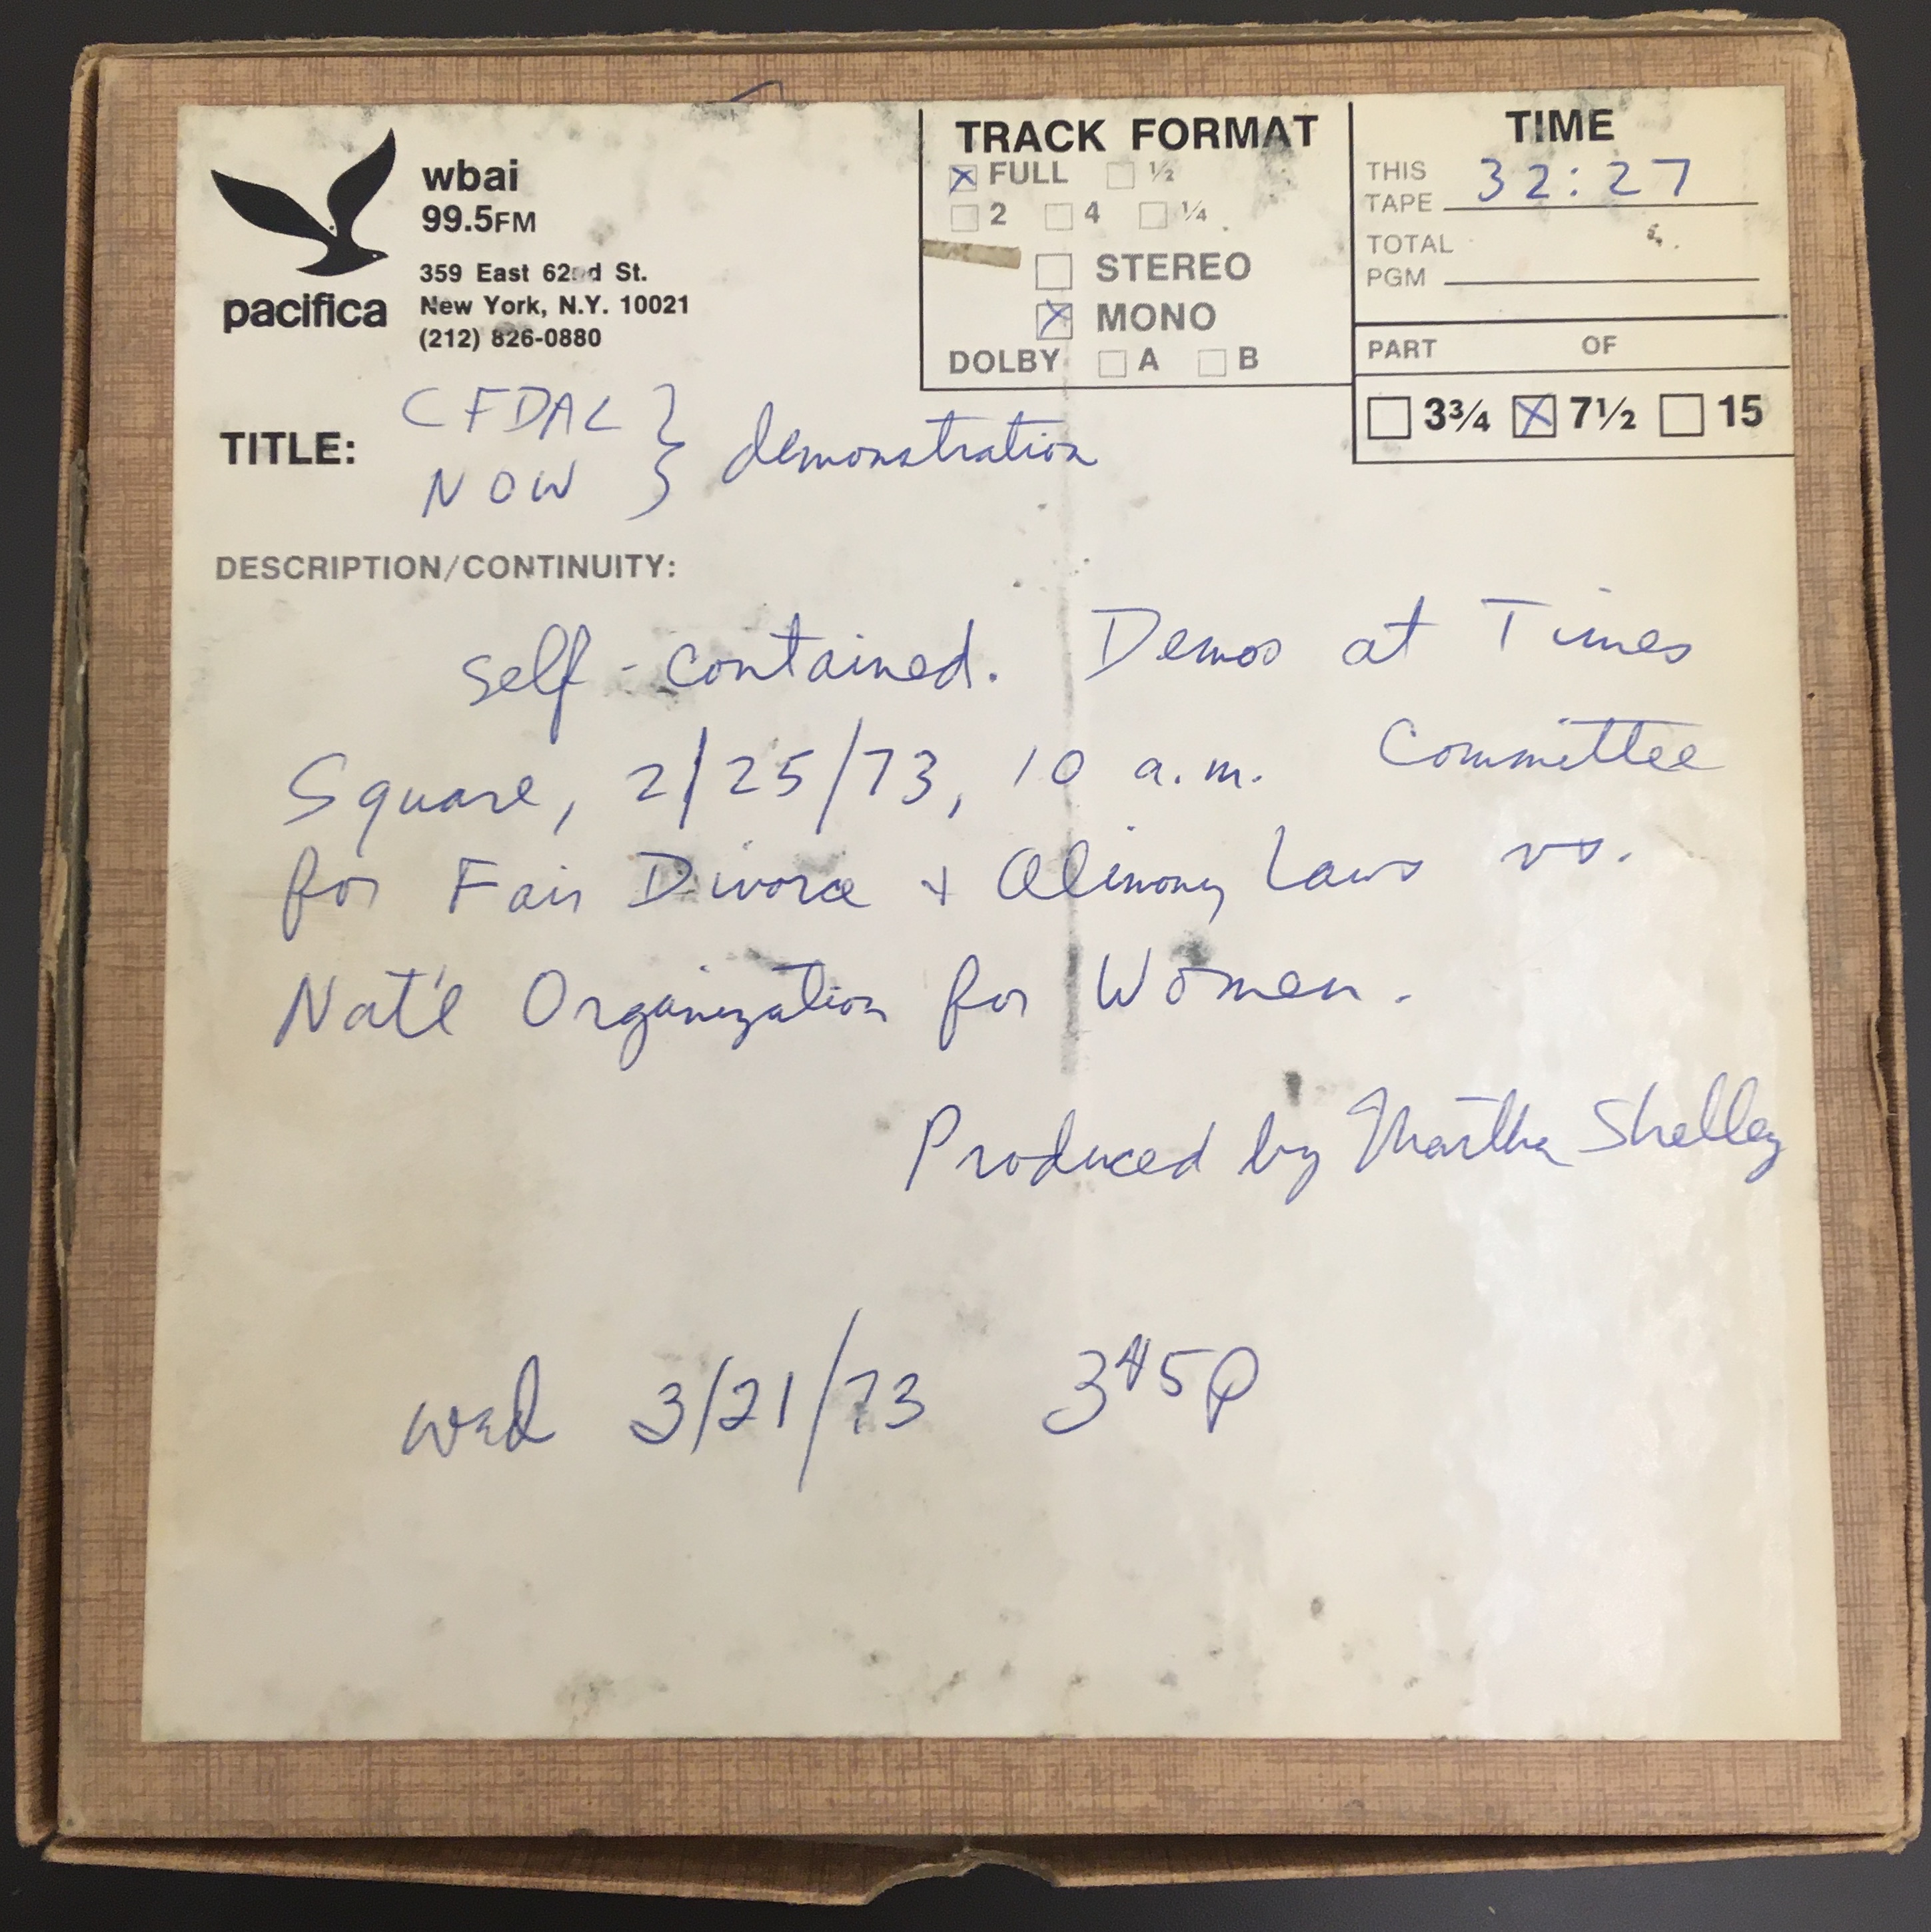 wbai
99.5FM
359 East 62nd St.
New York, N.Y. 10021
(212) 826-0880
pacifica
TRACK FORMAT
FULL ½
2 4 ¼
STEREO
MONO
DOLBY A B
TIME
THIS TAPE 32:27
TOTAL PGM
PART OF
3¾ 7½ 15
TITLE: CFDAL } demonstration
NOW
DESCRIPTION/CONTINUITY:
self-contained. Demos at Times
Square, 2/25/73, 10 a.m. Committee
for Fair Divorce + Alimony Laws vs.
Nat'l Organization for Women.
Produced by Martha Shelley
wed 3/21/73 345p